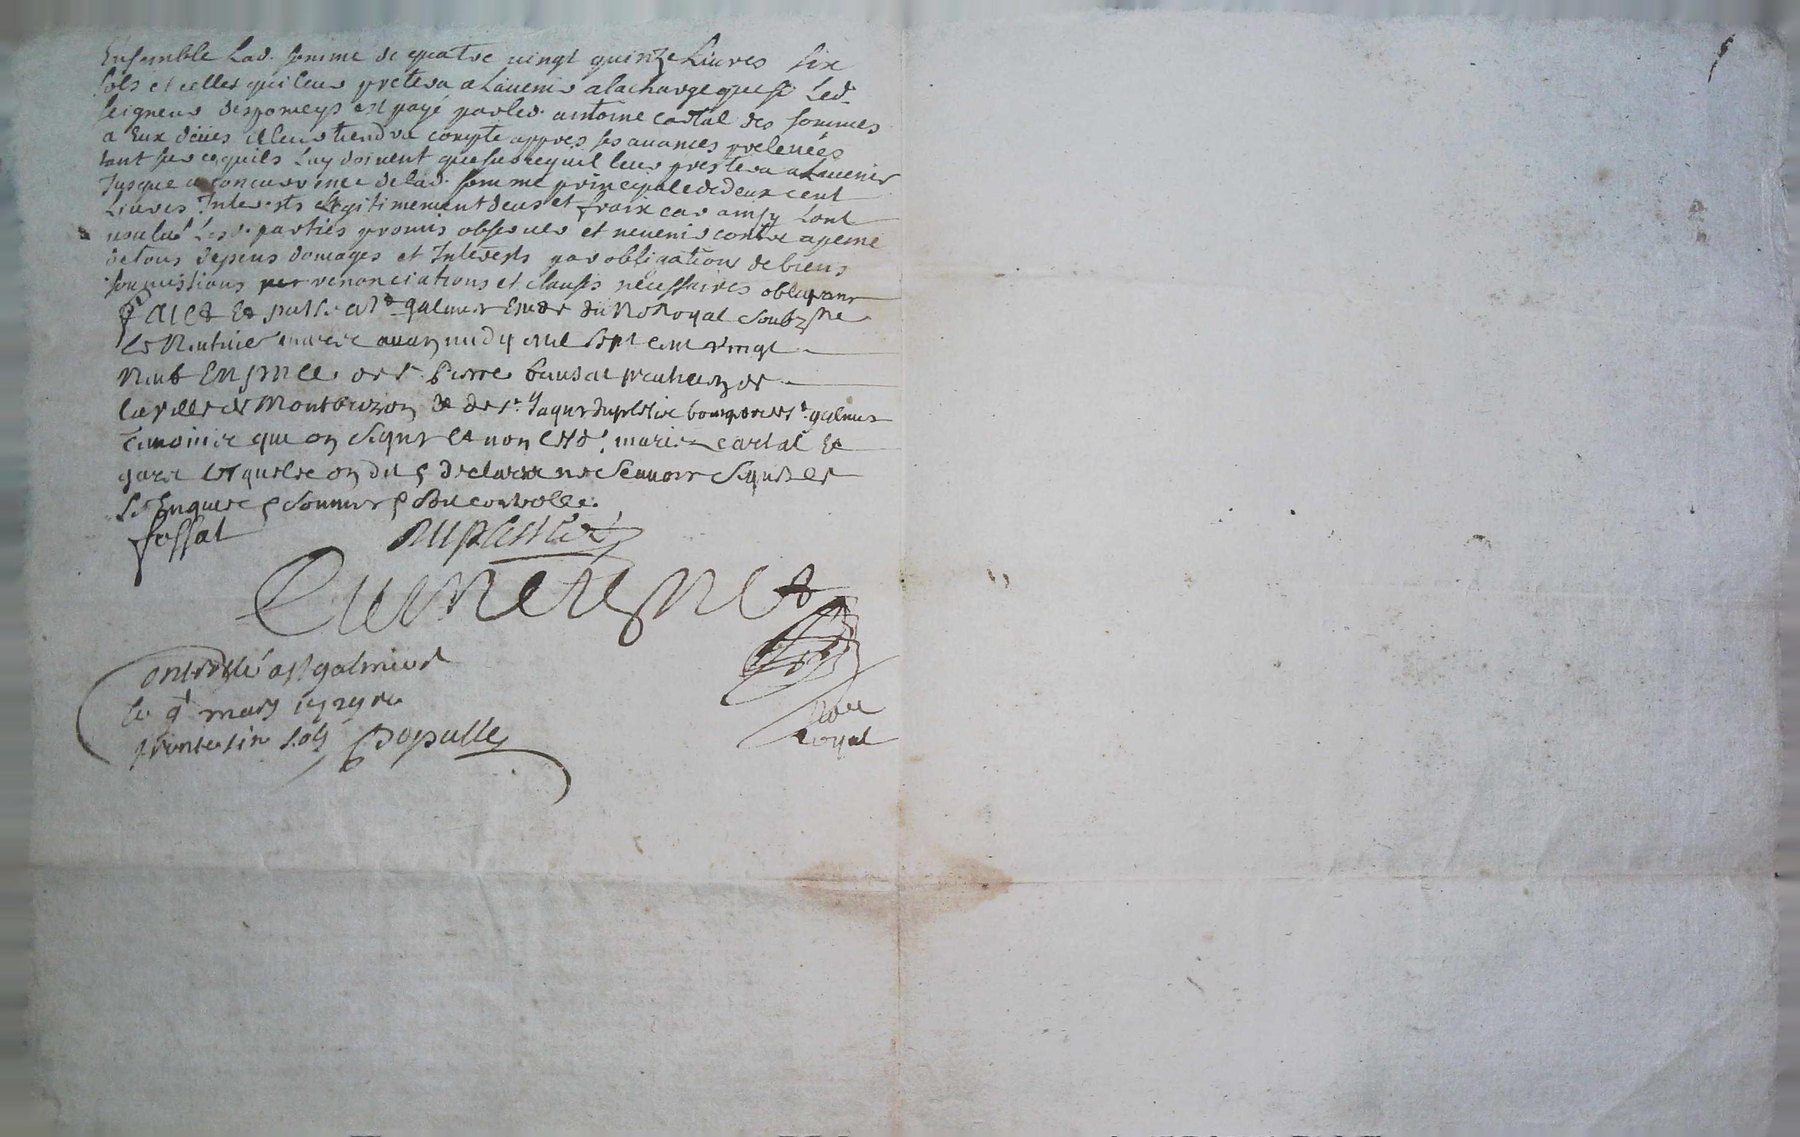 Ensemble Lad. somme de quatre vingt quinze Livres six
sols et celles quil leur pretera a Lavenir alacharge que si Led.
seigneur desporneys est payé par led. antoine cartal des sommes
a Eux deues il leur tiendra compte appres ses avances prelevées
tant sur ce quils Luy doivent que sur ce quil leur prestera a Lavenir
Jusque a concurrence de lad. somme principale de deux cent
Livres Interests Legitimement deus et fraix car ainsy Lont
voulu Lesd. parties promis observer et ne venir contre a peine
de tous depens domages et Interests par obligations de biens
soumissions renonciations et clauses necessaires obligeant
faict et passé a St galmier Estude du No Royal soubzne
le neufvie mars avant midy mil sept cent vingt
neuf En pnce de sr. pierre
la ville de Montbrizon & de sr. Jaque duplessie bourgeois de st. galmier
temoins qui on signe et non lesd. marie cartal &
gare lesquels on dit & declaré ne scavoir signer de
ce Enquis & sommes & soit controllé.
fossat
duplessie
Controllé a st galmier
le 9e mars 1729 Re
trente six sols
Noe
Royal